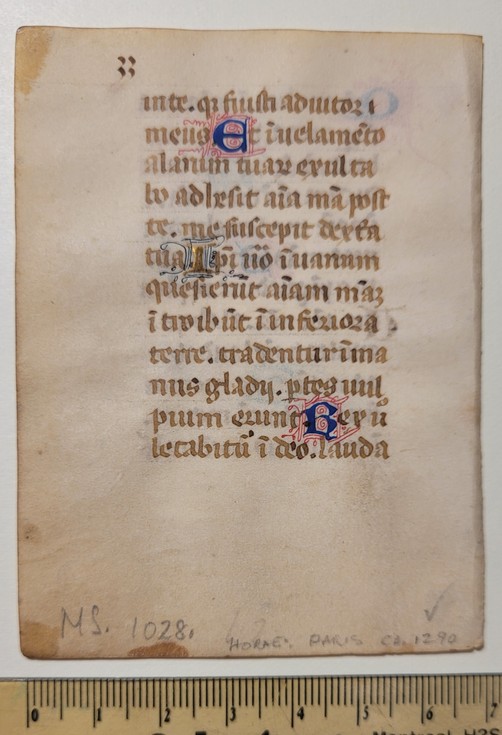 33
in te. qz fuisti adiutor
meus Et ī uelamēto
alarum tuarz exulta
bo adhesit aīa mā post
te. me suscepit dextā
tua Ipī uō ī uanum
quesierūt aīam māz
ītroibūt ī inferiora
terre. tradentur ī ma
nus gladij. ptes uul
pium erunt Rex ū
letabitū ī deo. lauda
MS. 1028.
HORAE. PARIS ca. 1290
0 1 2 3 4 5 6 7